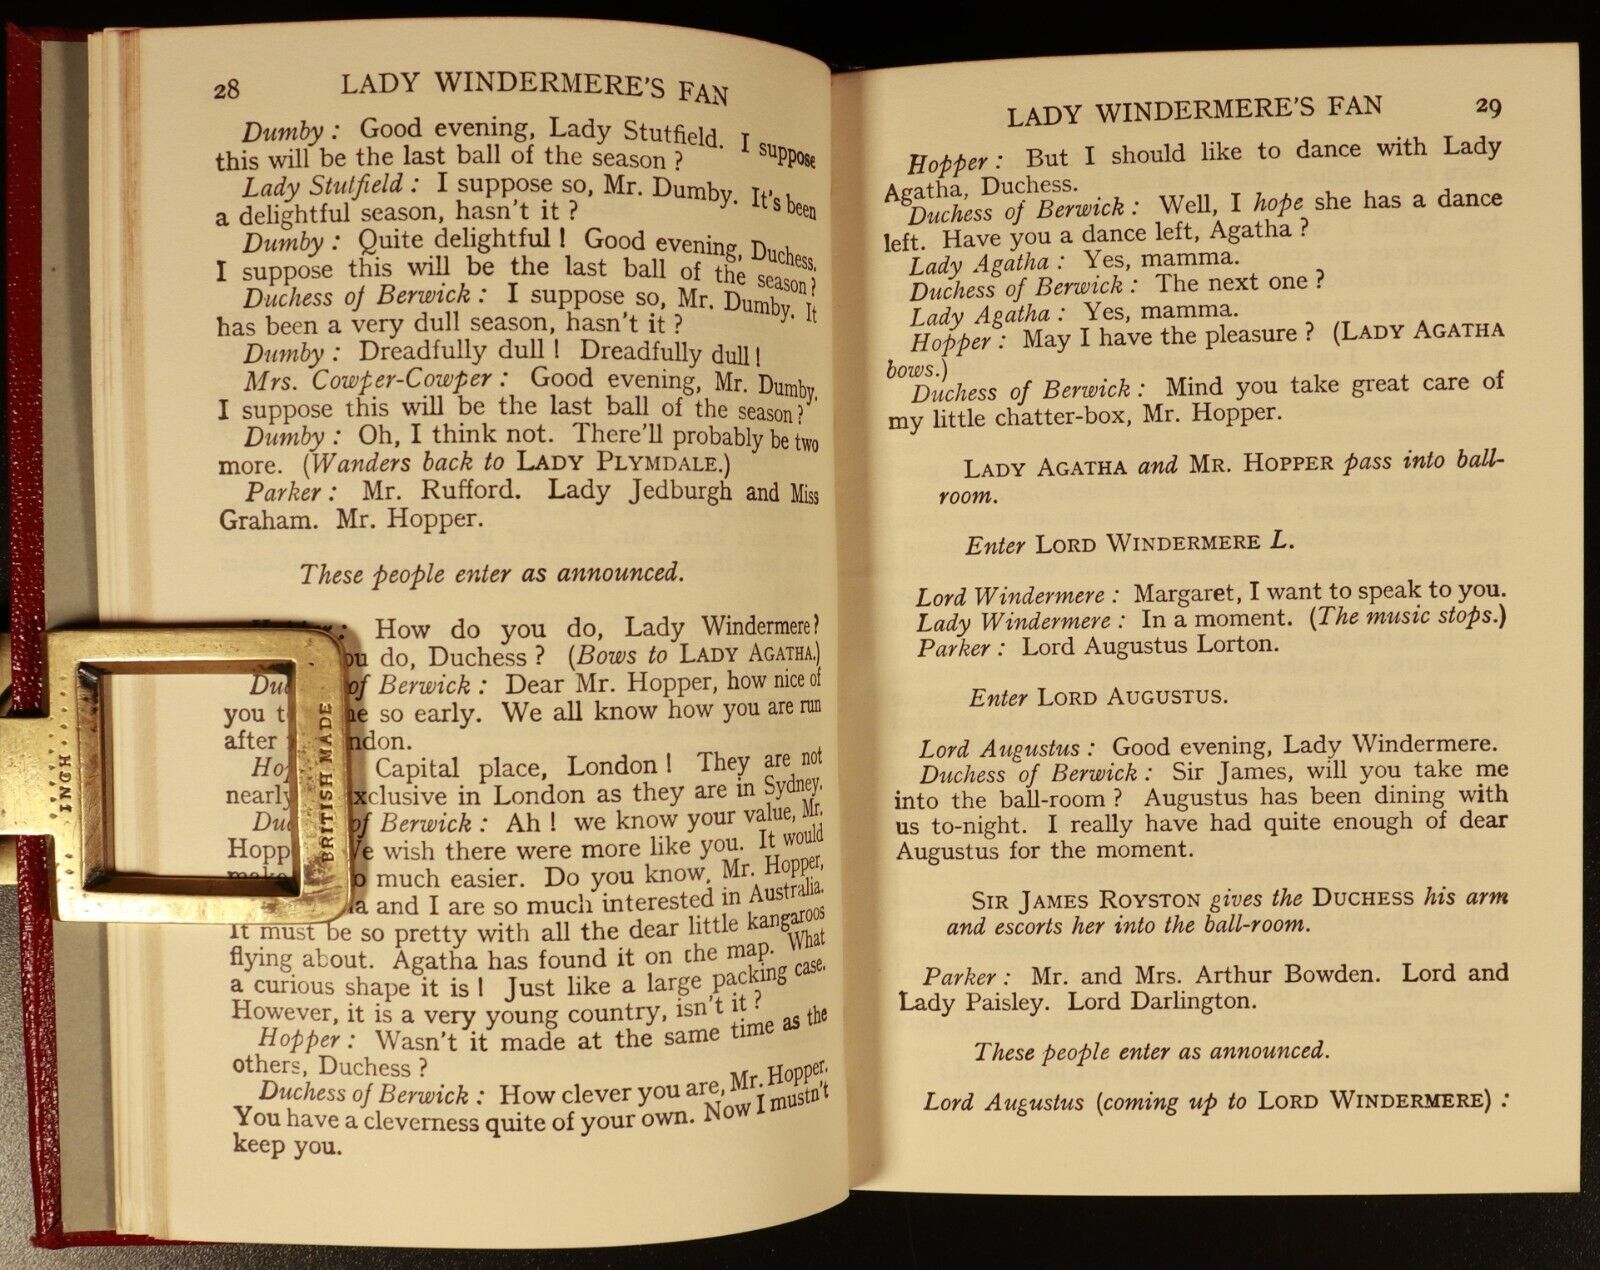 28 LADY WINDERMERE'S FAN
Dumby : Good evening, Lady Stutfield. I suppose
this will be the last ball of the season ?
Lady Stutfield : I suppose so, Mr. Dumby. It's been
a delightful season, hasn't it ?
Dumby : Quite delightful ! Good evening, Duchess.
I suppose this will be the last ball of the season ?
Duchess of Berwick : I suppose so, Mr. Dumby. It
has been a very dull season, hasn't it ?
Dumby : Dreadfully dull ! Dreadfully dull !
Mrs. Cowper-Cowper : Good evening, Mr. Dumby.
I suppose this will be the last ball of the season ?
Dumby : Oh, I think not. There'll probably be two
more. (Wanders back to LADY PLYMDALE.)
Parker : Mr. Rufford. Lady Jedburgh and Miss
Graham. Mr. Hopper.
These people enter as announced.
How do you do, Lady Windermere ?
do, Duchess ? (Bows to LADY AGATHA.)
of Berwick : Dear Mr. Hopper, how nice of
you so early. We all know how you are run
after
Capital place, London ! They are not
nearly exclusive in London as they are in Sydney.
of Berwick : Ah ! we know your value, Mr.
wish there were more like you. It would
much easier. Do you know, Mr. Hopper,
and I are so much interested in Australia.
It must be so pretty with all the dear little kangaroos
flying about. Agatha has found it on the map. What
a curious shape it is ! Just like a large packing case.
However, it is a very young country, isn't it ?
Hopper : Wasn't it made at the same time as the
others, Duchess ?
Duchess of Berwick : How clever you are, Mr. Hopper.
You have a cleverness quite of your own. Now I mustn't
keep you.
INGH
BRITISH MADE
LADY WINDERMERE'S FAN 29
Hopper : But I should like to dance with Lady
Agatha, Duchess.
Duchess of Berwick : Well, I hope she has a dance
left. Have you a dance left, Agatha ?
Lady Agatha : Yes, mamma.
Duchess of Berwick : The next one ?
Lady Agatha : Yes, mamma.
Hopper : May I have the pleasure ? (LADY AGATHA
bows.)
Duchess of Berwick : Mind you take great care of
my little chatter-box, Mr. Hopper.
LADY AGATHA and MR. HOPPER pass into ball-
room.
Enter LORD WINDERMERE L.
Lord Windermere : Margaret, I want to speak to you.
Lady Windermere : In a moment. (The music stops.)
Parker : Lord Augustus Lorton.
Enter LORD AUGUSTUS.
Lord Augustus : Good evening, Lady Windermere.
Duchess of Berwick : Sir James, will you take me
into the ball-room ? Augustus has been dining with
us to-night. I really have had quite enough of dear
Augustus for the moment.
SIR JAMES ROYSTON gives the DUCHESS his arm
and escorts her into the ball-room.
Parker : Mr. and Mrs. Arthur Bowden. Lord and
Lady Paisley. Lord Darlington.
These people enter as announced.
Lord Augustus (coming up to LORD WINDERMERE) :